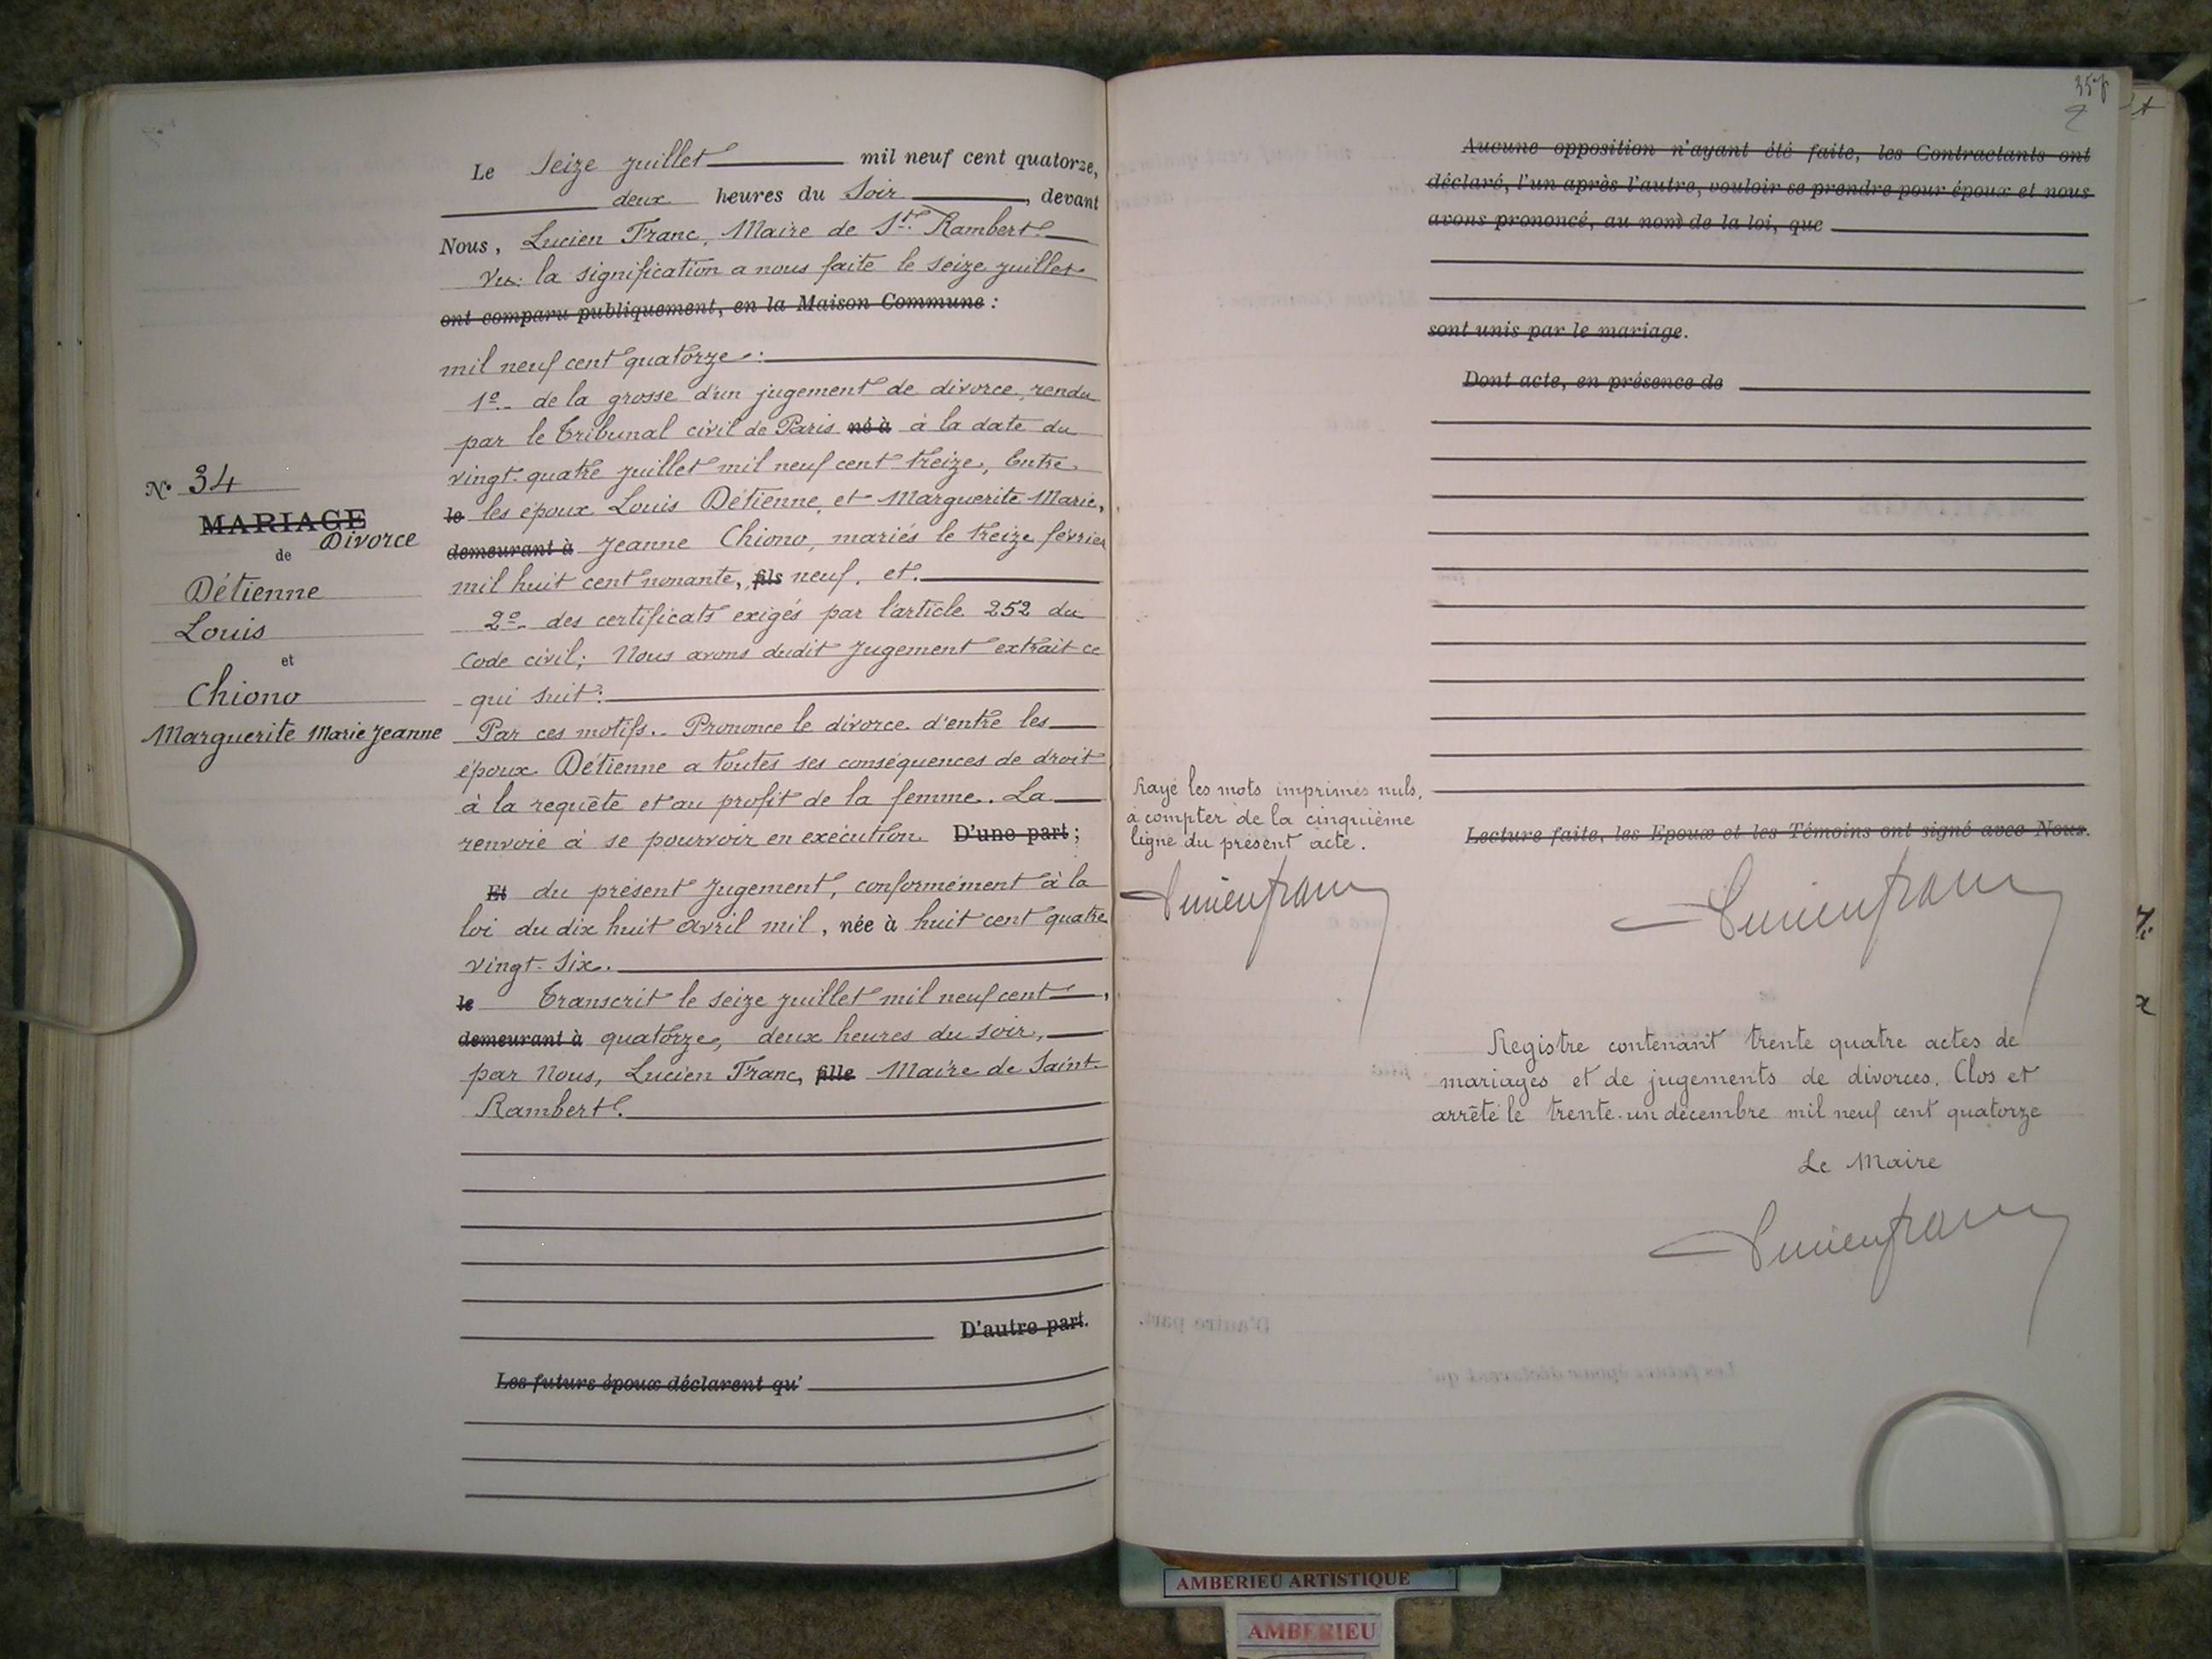 N° 34
MARIAGE
Divorce
de
Détienne
Louis
et
Chiono
Marguerite Marie Jeanne
Le Seize juillet mil neuf cent quatorze,
deux heures du Soir, devant
Nous, Lucien Franc, Maire de St. Rambert
Vu: la signification a nous faite le seize juillet
ont comparu publiquement, en la Maison Commune :
mil neuf cent quatorze:
1º- de la grosse d'un jugement de divorce, rendu
par le Tribunal civil de Paris né à à la date du
vingt-quatre juillet mil neuf cent treize, Entre
le les époux Louis Détienne, et Marguerite Marie,
demeurant à Jeanne Chiono, mariés le treize février
mil huit cent nonante, fils neuf. et.
2º- des certificats exigés par l'article 252 du
Code civil; Nous avons dudit Jugement extrait ce
qui suit:
Par ces motifs.- Prononce le divorce d'entre les
époux Détienne a toutes ses conséquences de droit
à la requête et au profit de la femme. La
renvoie à se pourvoir en exécution D'une part;
Et du présent Jugement, conformément à la
loi du dix huit Avril mil, née à huit cent quatre
vingt-Six.
le Transcrit le seize juillet mil neuf cent,
demeurant à quatorze, deux heures du soir,
par Nous, Lucien Franc, fille Maire de Saint-
Rambert.
D'autre part.
Les futurs époux déclarent qu'
Aucune opposition n'ayant été faite, les Contractants ont
déclaré, l'un après l'autre, vouloir se prendre pour époux et nous
avons prononcé, au nom de la loi, que
sont unis par le mariage.
Dont acte, en présence de
Rayé les mots imprimés nuls,
à compter de la cinquième
ligne du présent acte.
Lucien franc
Lecture faite, les Epoux et les Témoins ont signé avec Nous.
Lucien franc
Registre contenant trente quatre actes de
mariages et de jugements de divorces. Clos et
arrêté le trente-un décembre mil neuf cent quatorze
Le Maire
Lucien franc
AMBERIEU ARTISTIQUE
AMBERIEU